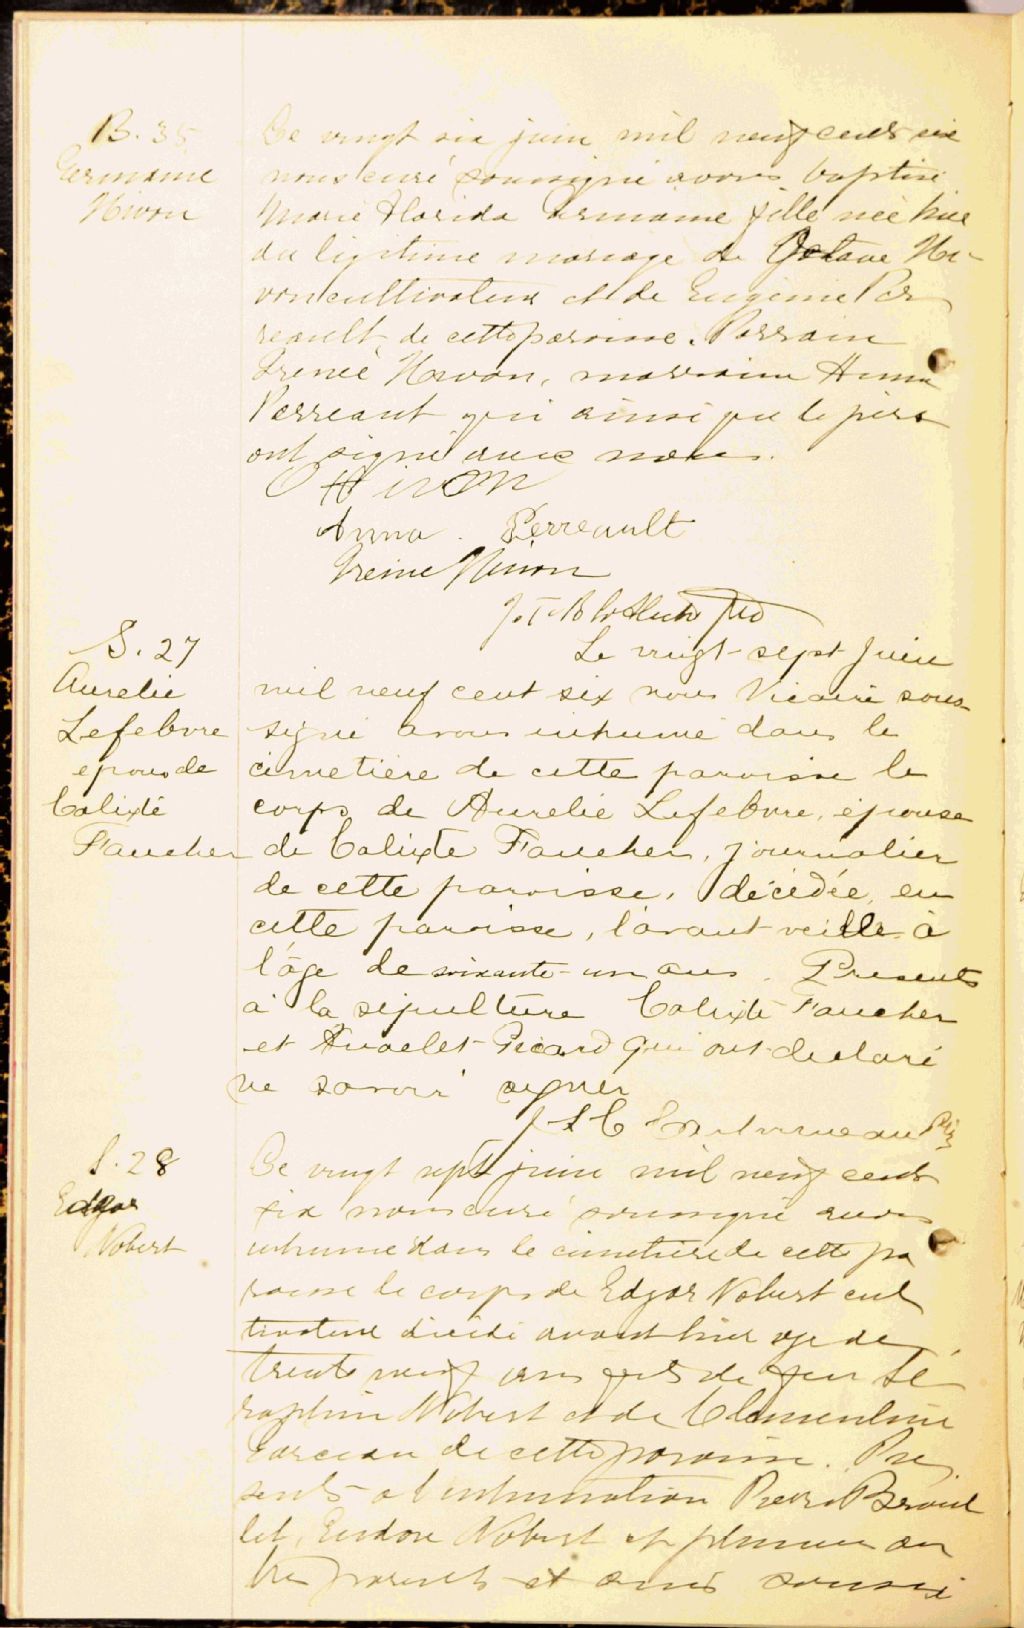 B. 35
Germaine
Hivon
Ce vingt six juin mil neuf cent six
nous curé soussigné avons baptisé
Marie Florida Germaine fille née hier
du légitime mariage de Octave Hi-
von cultivateur et de Eugénie Per
reault de cette paroisse. Parrain
Irenée Hivon, marraine Anna
Perreault qui ainsi que le père
ont signé avec nous.
O Hivon
Anna Perreault
Irenée Hivon
Ptre
S. 27
Aurelie
Lefebvre
epouse de
Calixte
Faucher
Le vingt-sept Juin
mil neuf cent six nous Vicaire sous-
signé avons inhumé dans le
cimetière de cette paroisse le
corps de Aurelie Lefebvre, épouse
de Calixte Faucher, journalier
de cette paroisse, décédée, en
cette paroisse, l'avant-veille à
l'âge de soixante-un ans. Presents
à la sépulture Calixte Faucher
et Picard qui ont declaré
ne savoir signer
Ptr
S. 28
Edgar
Nobert
Ce vingt sept juin mil neuf cent
six nous curé soussigné avons
inhumé dans le cimetière de cette pa
roisse le corps de Edgar Nobert cul
tivateur décédé avant hier age de
trente neuf ans fils de feu Sé
raphin Nobert et de Clementine
Garceau de cette paroisse. Pré
sents a l'inhumation Pierre Brouil
let, Eudore Nobert et plusieurs au
tres parents et amis soussi